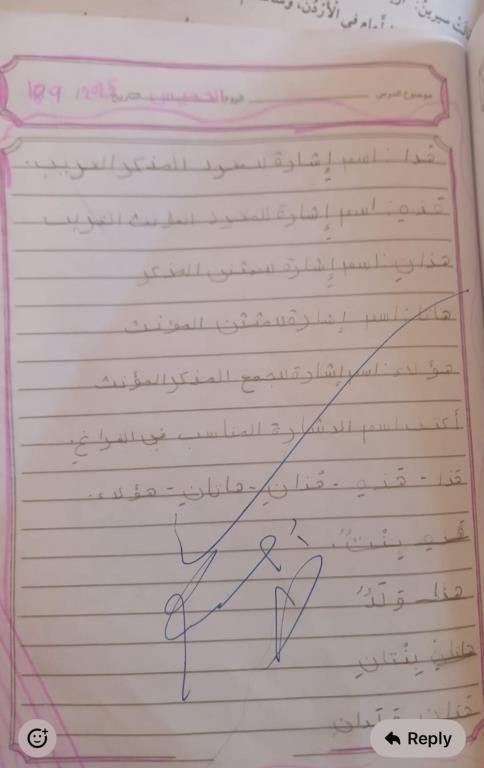 في الأردن،
موضوع الدرس اليوم الخميس التاريخ
هذا : اسم إشارة للمفرد المذكر القريب.
هذه : اسم إشارة للمفرد المؤنث القريب
هذان : اسم إشارة للمثنى المذكر
هاتان : اسم إشارة للمثنى المؤنث
هؤلاء : اسم إشارة للجمع المذكر المؤنث
أكتب اسم الاشارة المناسب في الفراغ.
هذا - هذه - هذان - هاتان - هؤلاء.
هذه بِنْتٌ.
هذا وَلَدٌ
هاتان بِنْتانِ
هذان ولدان
Reply